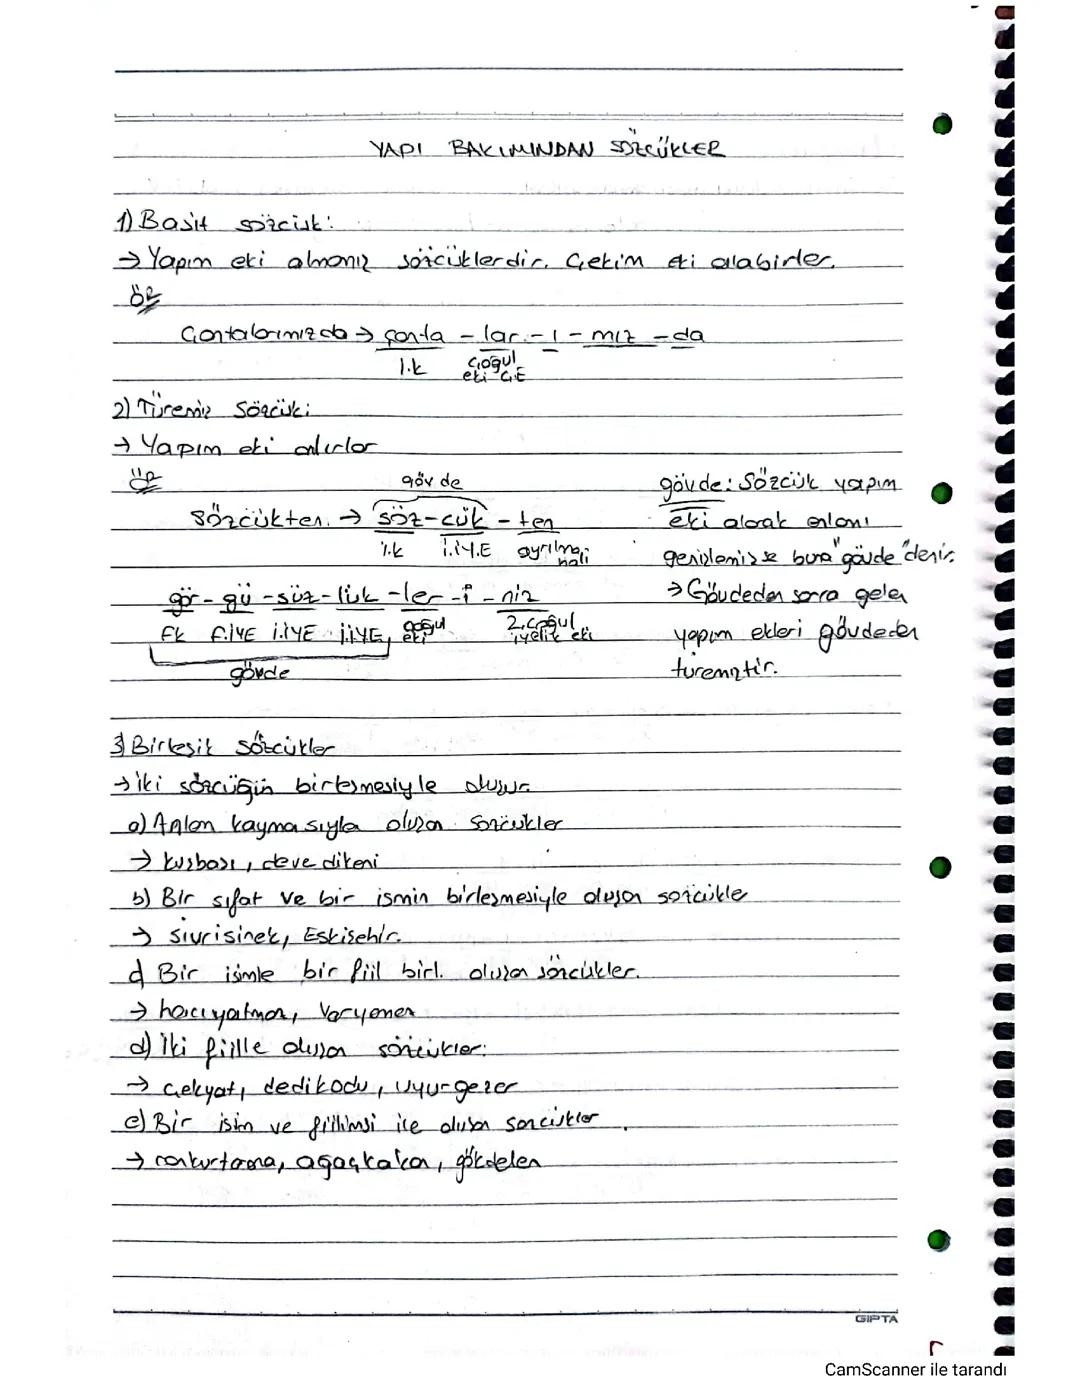 YAPI BAKIMINDAN SÖZCÜKLER
1) Basit sözcük:
→ Yapım eki almamış sözcüklerdir. Çekim eki alabirler.
ÖR
Çantalarımızda → çanta - lar - ı - mız - da
İ.k çoğul eki Ç.E
2) Türemiş Sözcük:
→ Yapım eki alırlar
ÖR gövde gövde: Sözcük yapım
Sözcükten → söz-cük - ten eki alarak anlamı
İ.k İ.İ.Y.E ayrılma hali genişlemişse buna "gövde" denir.
gör - gü - süz - lük - ler - i - niz → Gövdeden sonra gelen
FK F.İYE İ.İYE İ.İYE çoğul eki 2.çoğul iyelik eki yapım ekleri gövdeden
gövde türemiştir.
3) Birleşik Sözcükler
→ iki sözcüğün birleşmesiyle oluşur
a) Anlam kaymasıyla oluşan sözcükler
→ kuşbaşı, deve dikeni
b) Bir sıfat ve bir ismin birleşmesiyle oluşan sözcükler
→ sivrisinek, Eskişehir.
c) Bir isimle bir fiil birl. oluşan sözcükler.
→ hacıyatmaz, Varyemez
d) İki fiille oluşan sözcükler:
→ Çekyat, dedikodu, uyur-gezer
e) Bir isim ve fiilimsi ile oluşan sözcükler
→ cankurtaran, ağaçkakan, gökdelen
GIPTA
CamScanner ile tarandı